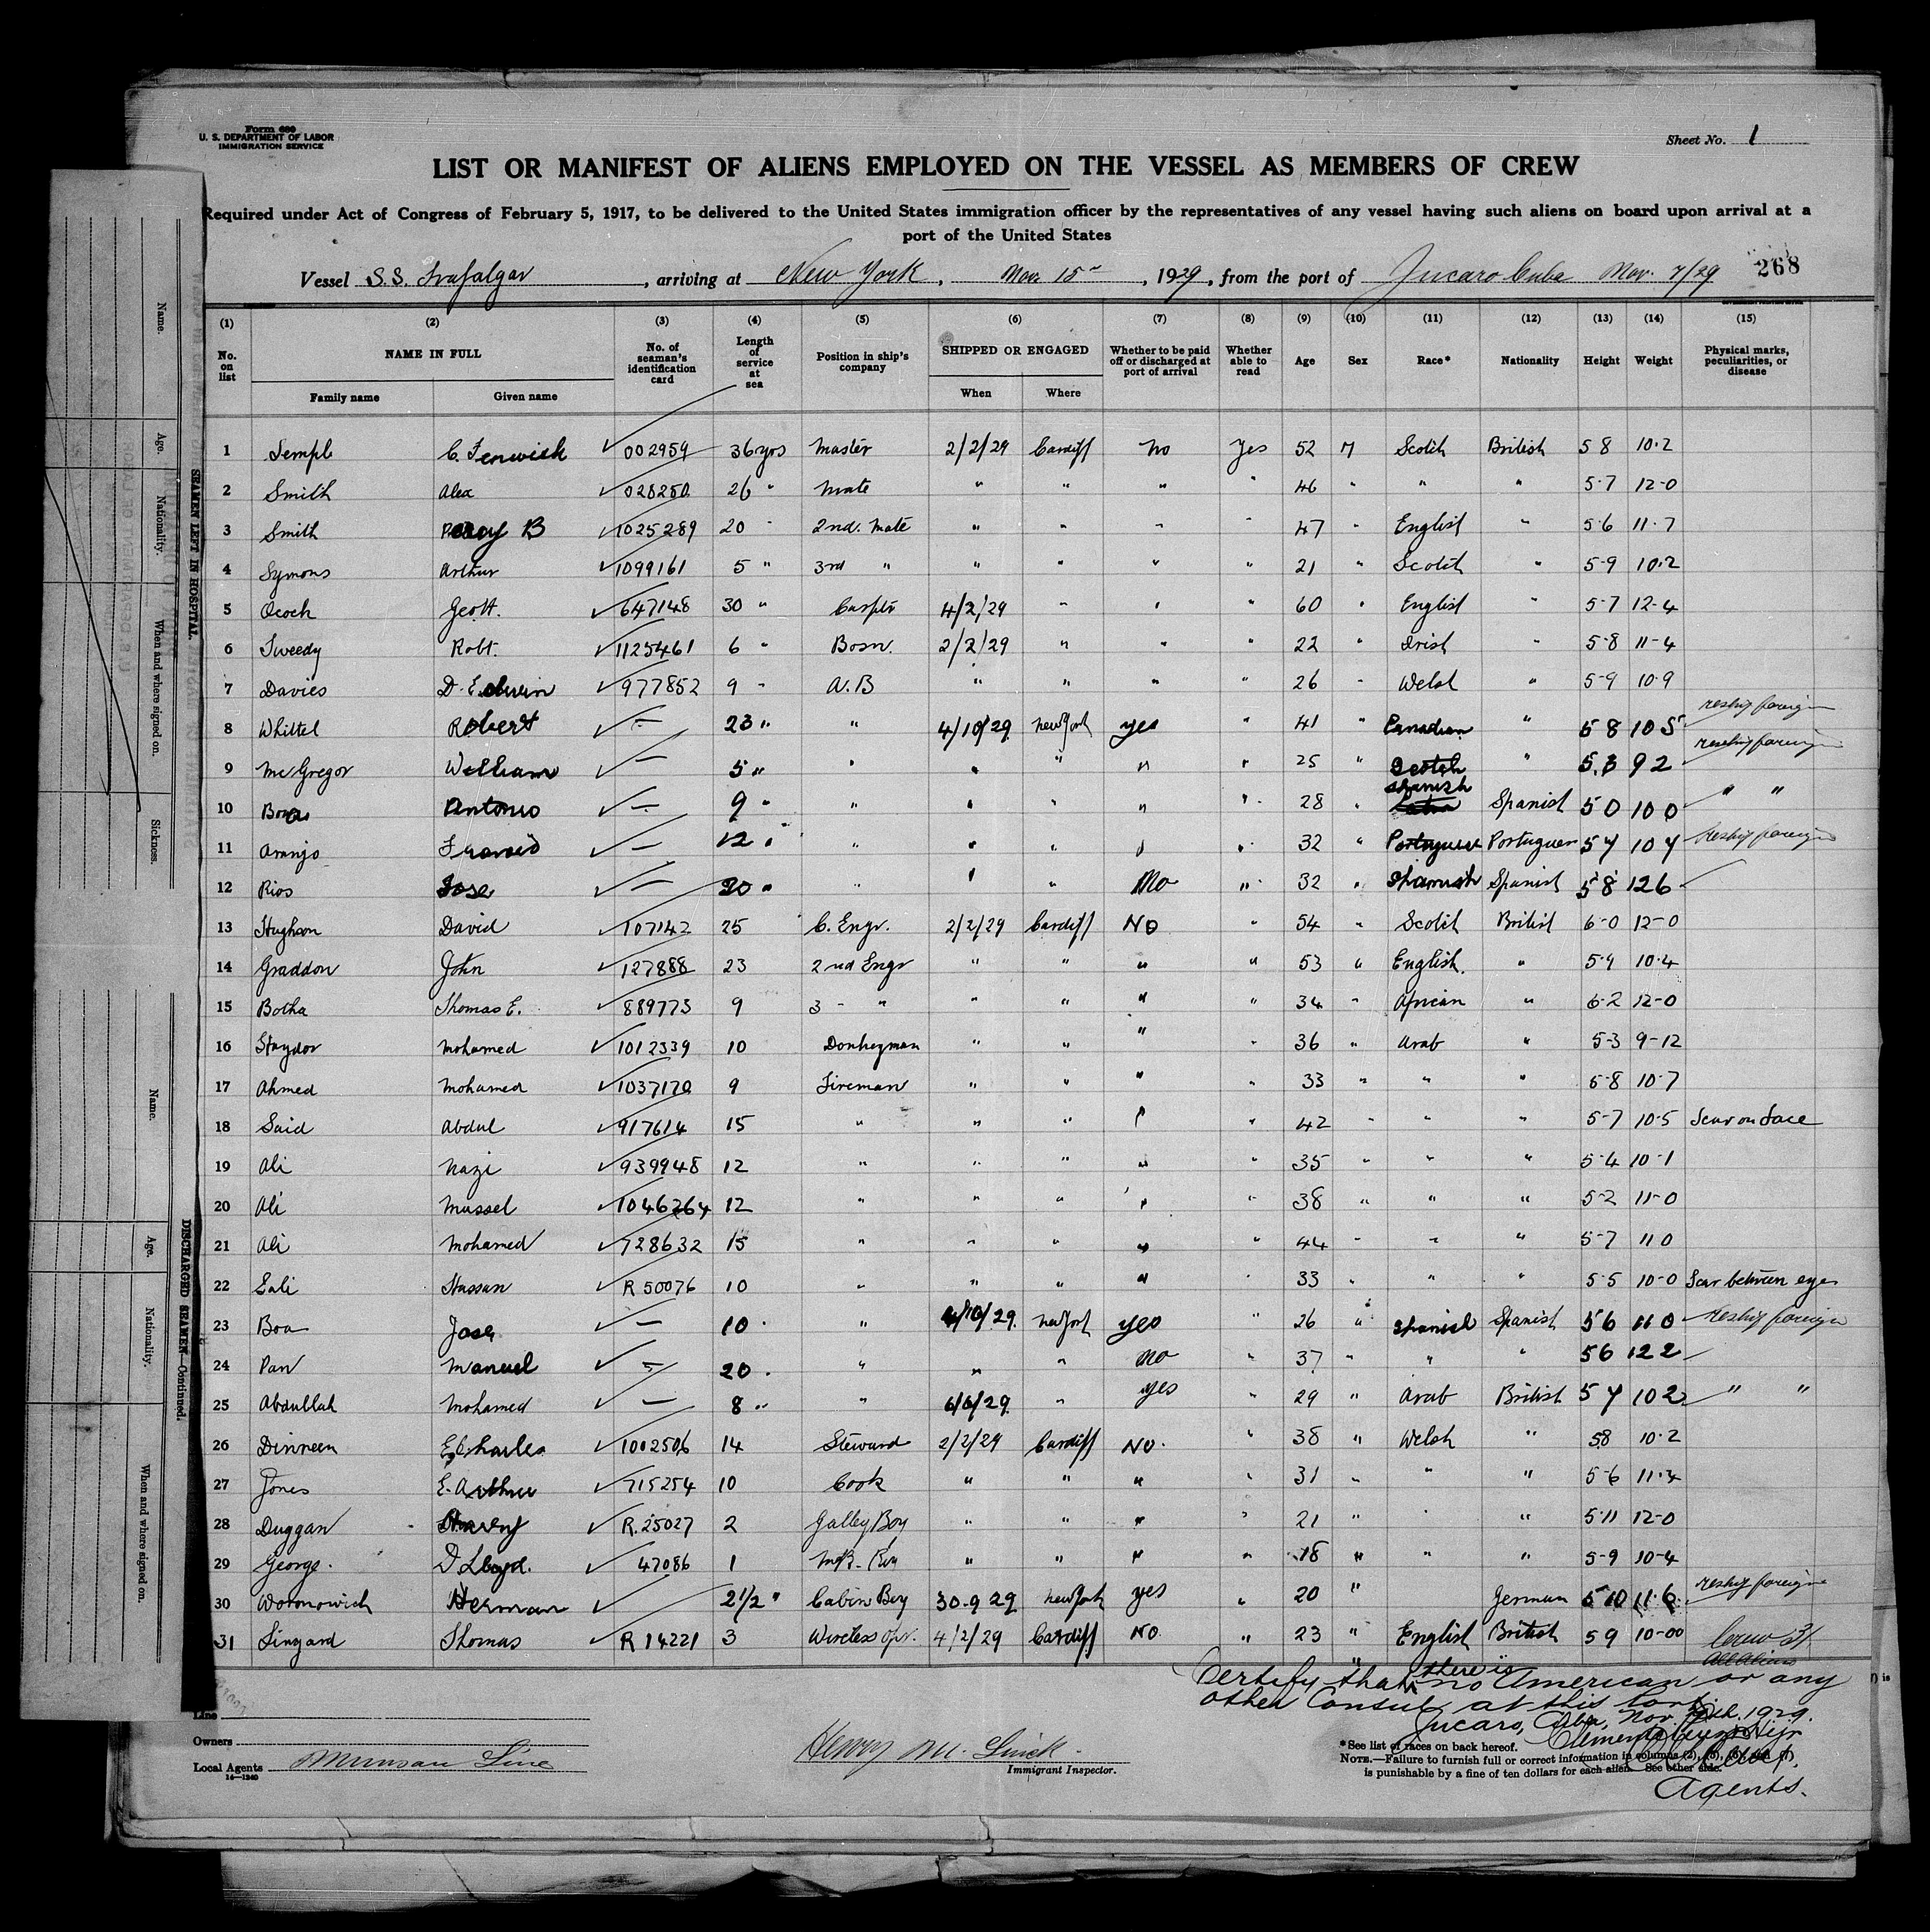 Form 680
U. S. DEPARTMENT OF LABOR
IMMIGRATION SERVICE
Sheet No. 1
LIST OR MANIFEST OF ALIENS EMPLOYED ON THE VESSEL AS MEMBERS OF CREW
Required under Act of Congress of February 5, 1917, to be delivered to the United States immigration officer by the representatives of any vessel having such aliens on board upon arrival at a
port of the United States
268
Vessel S.S. Trafalgar, arriving at New York, Nov 15, 1929, from the port of Jucaro Cuba Nov. 7/29
(1) (2) (3) (4) (5) (6) (7) (8) (9) (10) (11) (12) (13) (14) (15)
No. on list NAME IN FULL Family name Given name No. of seaman's identification card Length of service at sea Position in ship's company SHIPPED OR ENGAGED When Where Whether to be paid off or discharged at port of arrival Whether able to read Age Sex Race* Nationality Height Weight Physical marks, peculiarities, or disease
1 Temple C. Fenwick 002959 36 yrs Master 2/2/29 Cardiff No Yes 52 M Scotch British 5 8 10.2
2 Smith Alex 028280 26 " Mate " " " " 46 " " " 5-7 12-0
3 Smith Percy B 1025289 20 " 2nd. Mate " " " " 47 " English " 5-6 11-7
4 Symons Arthur 1099161 5 " 3rd " " " " " 21 " Scotch " 5-9 10.2
5 Ocock Geo H. 647148 30 " Carptr 4/2/29 " " " 60 " English " 5-7 12-4
6 Tweedy Robt. 1125461 6 " Bosn. 2/2/29 " " " 22 " Irish " 5-8 11-4
7 Davies D. Edwin 977852 9 " A.B " " " " 26 " Welsh " 5-9 10.9
8 Whittel Robert — 23 " " 4/10/29 New York yes " 41 " Canadian " 5 8 10 5 reship foreign
9 McGregor William — 5 " " " " " " 25 " Scotch " 5.3 9 2 reship foreign
10 Antonio — 9 " " " " " " 28 " Spanish Spanish 5 0 10 0 " "
11 Aranjo — 12 " " " " " " 32 " Portuguese Portuguese 5 7 10 7 Reship foreign
12 Rios Jose — 20 " " " " No " 32 " Spanish Spanish 5 8 12 6
13 Hughson David 107142 25 C. Engr. 2/2/29 Cardiff No " 54 " Scotch British 6-0 12-0
14 Graddon John 127888 23 2nd Engr " " " " 53 " English. " 5-9 10.4
15 Botha Thomas E. 889773 9 3 - " " " " " 34 " African " 6-2 12-0
16 Mohamed 1012339 10 Donkeyman " " " " 36 " Arab " 5-3 9-12
17 Ahmed Mohamed 1037170 9 Fireman " " " " 33 " " " 5-8 10-7
18 Said Abdul 917614 15 " " " " " 42 " " " 5-7 10-5 Scar on Face
19 Ali Nazi 939948 12 " " " " " 35 " " " 5-4 10-1
20 Ali Mussel 1046264 12 " " " " " 38 " " " 5-2 11-0
21 Ali Mohamed 728632 15 " " " " " 44 " " " 5-7 11 0
22 Sali Hassan R 50076 10 " " " " " 33 " " " 5-5 10-0 Scar between eyes
23 Boa Jose — 10 " " 4/10/29 New York yes " 26 " Spanish Spanish 5 6 11 0 Reship foreign
24 Pan Manuel — 20 " " " " No " 37 " " " 5 6 12 2
25 Abdullah Mohamed — 8 " " 6/6/29 " yes " 29 " Arab British 5 7 10 2 " "
26 Dinneen E. Charles 1002506 14 Steward 2/2/29 Cardiff No. " 38 " Welsh " 5 8 10.2
27 Jones E. Arthur 715254 10 Cook " " " " 31 " " " 5-6 11.4
28 Duggan R. 25027 2 Galley Boy " " " " 21 " " " 5-11 12-0
29 George. D Lloyd. 47086 1 " " " " 18 " " " 5-9 10-4
30 Woronowich Herman 2 1/2 " Cabin Boy 30-9 29 New York yes " 20 " German 5 10 11.6 reship foreign
31 Lingard Thomas R 14221 3 Wireless opr. 4/2/29 Cardiff No " 23 " English British 5 9 10-00 Crew 31
All Aliens
Certify that there is no American or any
other Consul at this port.
Jucaro, Cuba, Nov. 1929.
Agents.
Line
Owners
Local Agents Munson Line
14—1240
Immigrant Inspector.
*See list of races on back hereof.
NOTE.—Failure to furnish full or correct information in columns (2), (5), (6), and (7)
is punishable by a fine of ten dollars for each alien. See other side.
SEAMEN LEFT IN HOSPITAL.
Name. Age. Nationality. When and where signed on. Sickness.
DISCHARGED SEAMEN—Continued.
Name. Age. Nationality. When and where signed on.